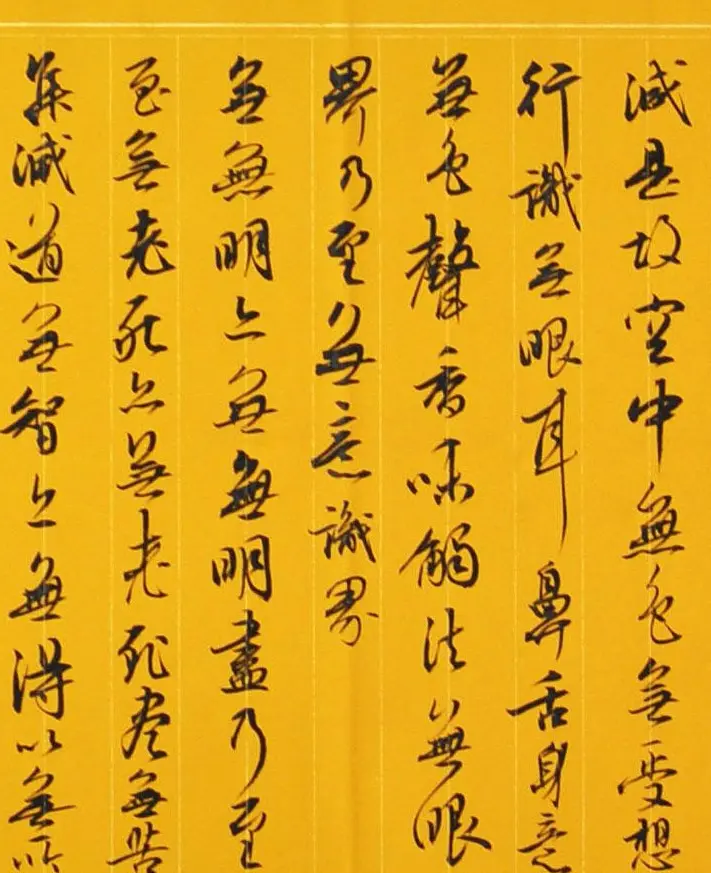 減是故空中無色無受想
行識無眼耳鼻舌身意
無色聲香味觸法無眼
界乃至無意識界
無無明亦無無明盡乃至
至無老死亦無老死尽無苦
集滅道無智亦無得以無所